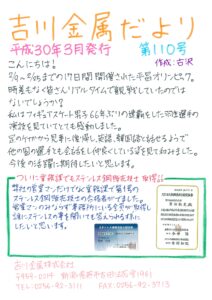 吉川金属だより
平成30年3月発行 第110号
作成:古沢
こんにちは!
2/9〜2/25までの17日間 開催された平昌オリンピック。
時差もなく皆さんリアルタイムで観戦していたのでは
ないでしょうか?
私はフィギュアスケート男子66年ぶりの連覇をした羽生選手の
演技を見ていてとても感動しました。
王の行から見事に復帰し英語、韓国語も話せるようで
他の国の選手とも会話をし仲良くしている姿を見て和みました。
今後の活躍に期待したいと思います。
ついに業務課でもステンレス鋼販売技士取得!!
弊社の営業マンだけでなく業務課で第1号の
ステンレス鋼販売技士の合格者がでました。
営業マンのみならず事務所にいる全員が取得し
誰にステンレスの事を聞いても答えられる体に
したいと思います。
吉川金属株式会社
〒959-0217 新潟県燕市吉田法花堂1961
TEL:0256-92-3111 FAX:0256-92-3113